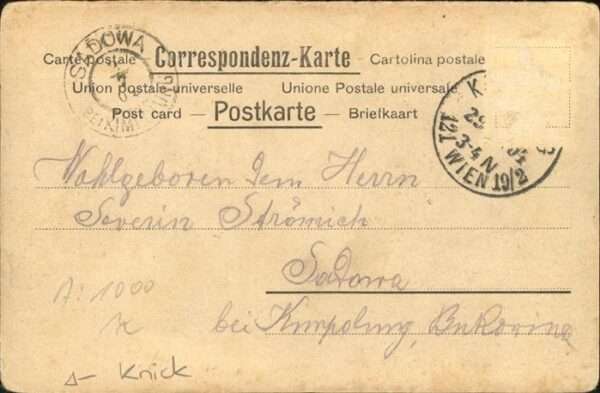 SADOWA
Carte postale Correspondenz-Karte - Cartolina postale
Union postale universelle Unione Postale universale
Post card — Postkarte — Briefkaart
K
29 04
3-4 N
121 WIEN 19/2
Wohlgeboren Dem Herrn
Severin Strömich
Sadowa
bei Kimpolung, Bukovina
A: 1000
K
Knick